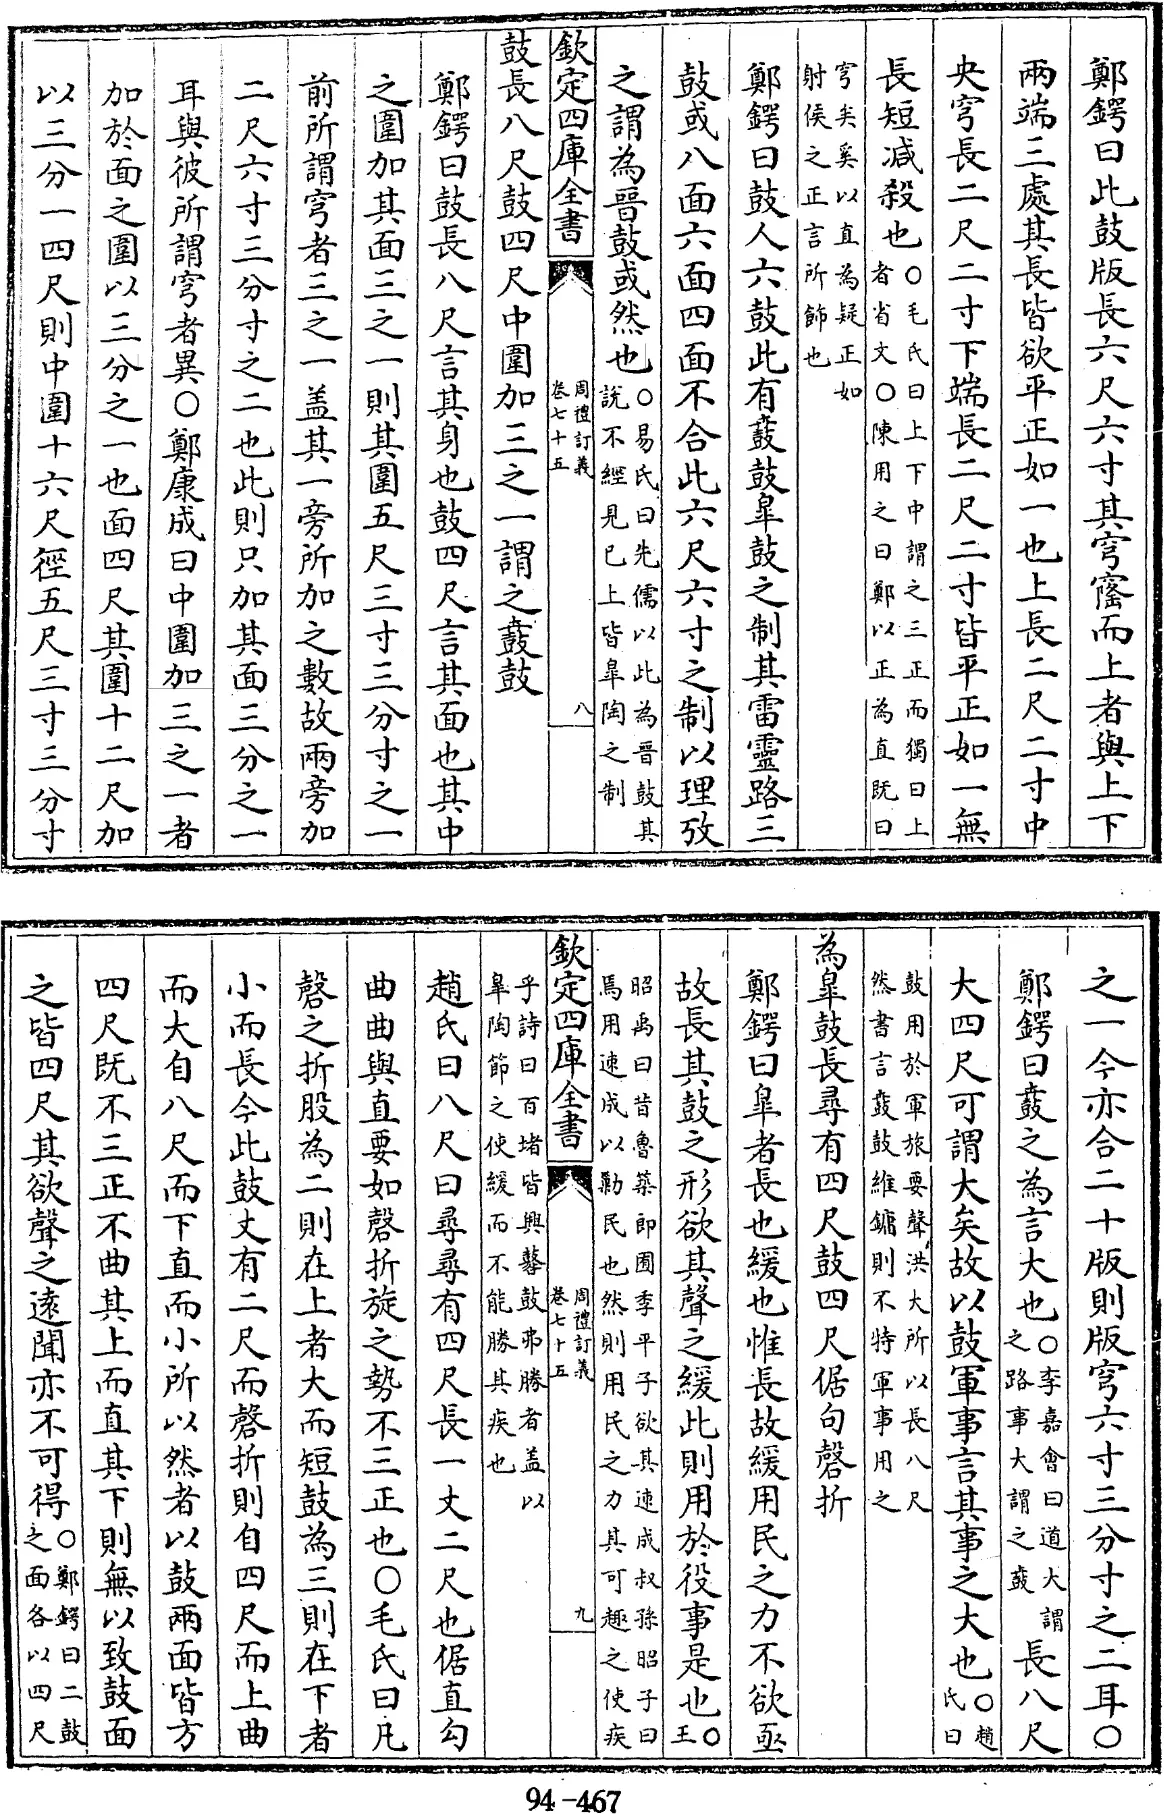 鄭鍔曰此鼓版長六尺六寸其穹窿而上者與上下
兩端三處其長皆欲平正如一也上長二尺二寸中
央穹長二尺二寸下端長二尺二寸皆平正如一無
長短減殺也○毛氏曰上下中謂之三正而獨曰上
者省文○陳用之曰鄭以正為直既曰
穹矣奚以直為疑正如
射侯之正言所飾也
鄭鍔曰鼓人六鼓此有鼖鼓臯鼓之制其雷靈路三
鼓或八面六面四面不合此六尺六寸之制以理攷
之謂為晉鼓或然也○易氏曰先儒以此為晉鼓其
說不經見已上皆臯陶之制
欽定四庫全書
周禮訂義
卷七十五
八
鼓長八尺鼓四尺中圍加三之一謂之鼖鼓
鄭鍔曰鼓長八尺言其身也鼓四尺言其面也其中
之圍加其面三之一則其圍五尺三寸三分寸之一
前所謂穹者三之一盖其一旁所加之數故兩旁加
二尺六寸三分寸之二也此則只加其面三分之一
耳與彼所謂穹者異○鄭康成曰中圍加三之一者
加於面之圍以三分之一也面四尺其圍十二尺加
以三分一四尺則中圍十六尺徑五尺三寸三分寸
之一今亦合二十版則版穹六寸三分寸之二耳○
鄭鍔曰鼖之為言大也○李嘉會曰道大謂
之路事大謂之鼖長八尺
大四尺可謂大矣故以鼓軍事言其事之大也○趙
氏曰
鼓用於軍旅要聲洪大所以長八尺
然書言鼖鼓維鏞則不特軍事用之
為臯鼓長尋有四尺鼓四尺倨句磬折
鄭鍔曰臯者長也緩也惟長故緩用民之力不欲亟
故長其鼓之形欲其聲之緩此則用於役事是也○
王
昭禹曰昔魯築郎囿季平子欲其速成叔孫昭子曰
焉用速成以勦民也然則用民之力其可趣之使疾
欽定四庫全書
周禮訂義
卷七十五
九
乎詩曰百堵皆興鼛鼓弗勝者盖以
臯陶節之使緩而不能勝其疾也
趙氏曰八尺曰尋尋有四尺長一丈二尺也倨直勾
曲曲與直要如磬折旋之勢不三正也○毛氏曰凡
磬之折股為二則在上者大而短鼓為三則在下者
小而長今此鼓丈有二尺而磬折則自四尺而上曲
而大自八尺而下直而小所以然者以鼓兩面皆方
四尺既不三正不曲其上而直其下則無以致鼓面
之皆四尺其欲聲之遠聞亦不可得○鄭鍔曰二鼓
之面各以四尺
94-467